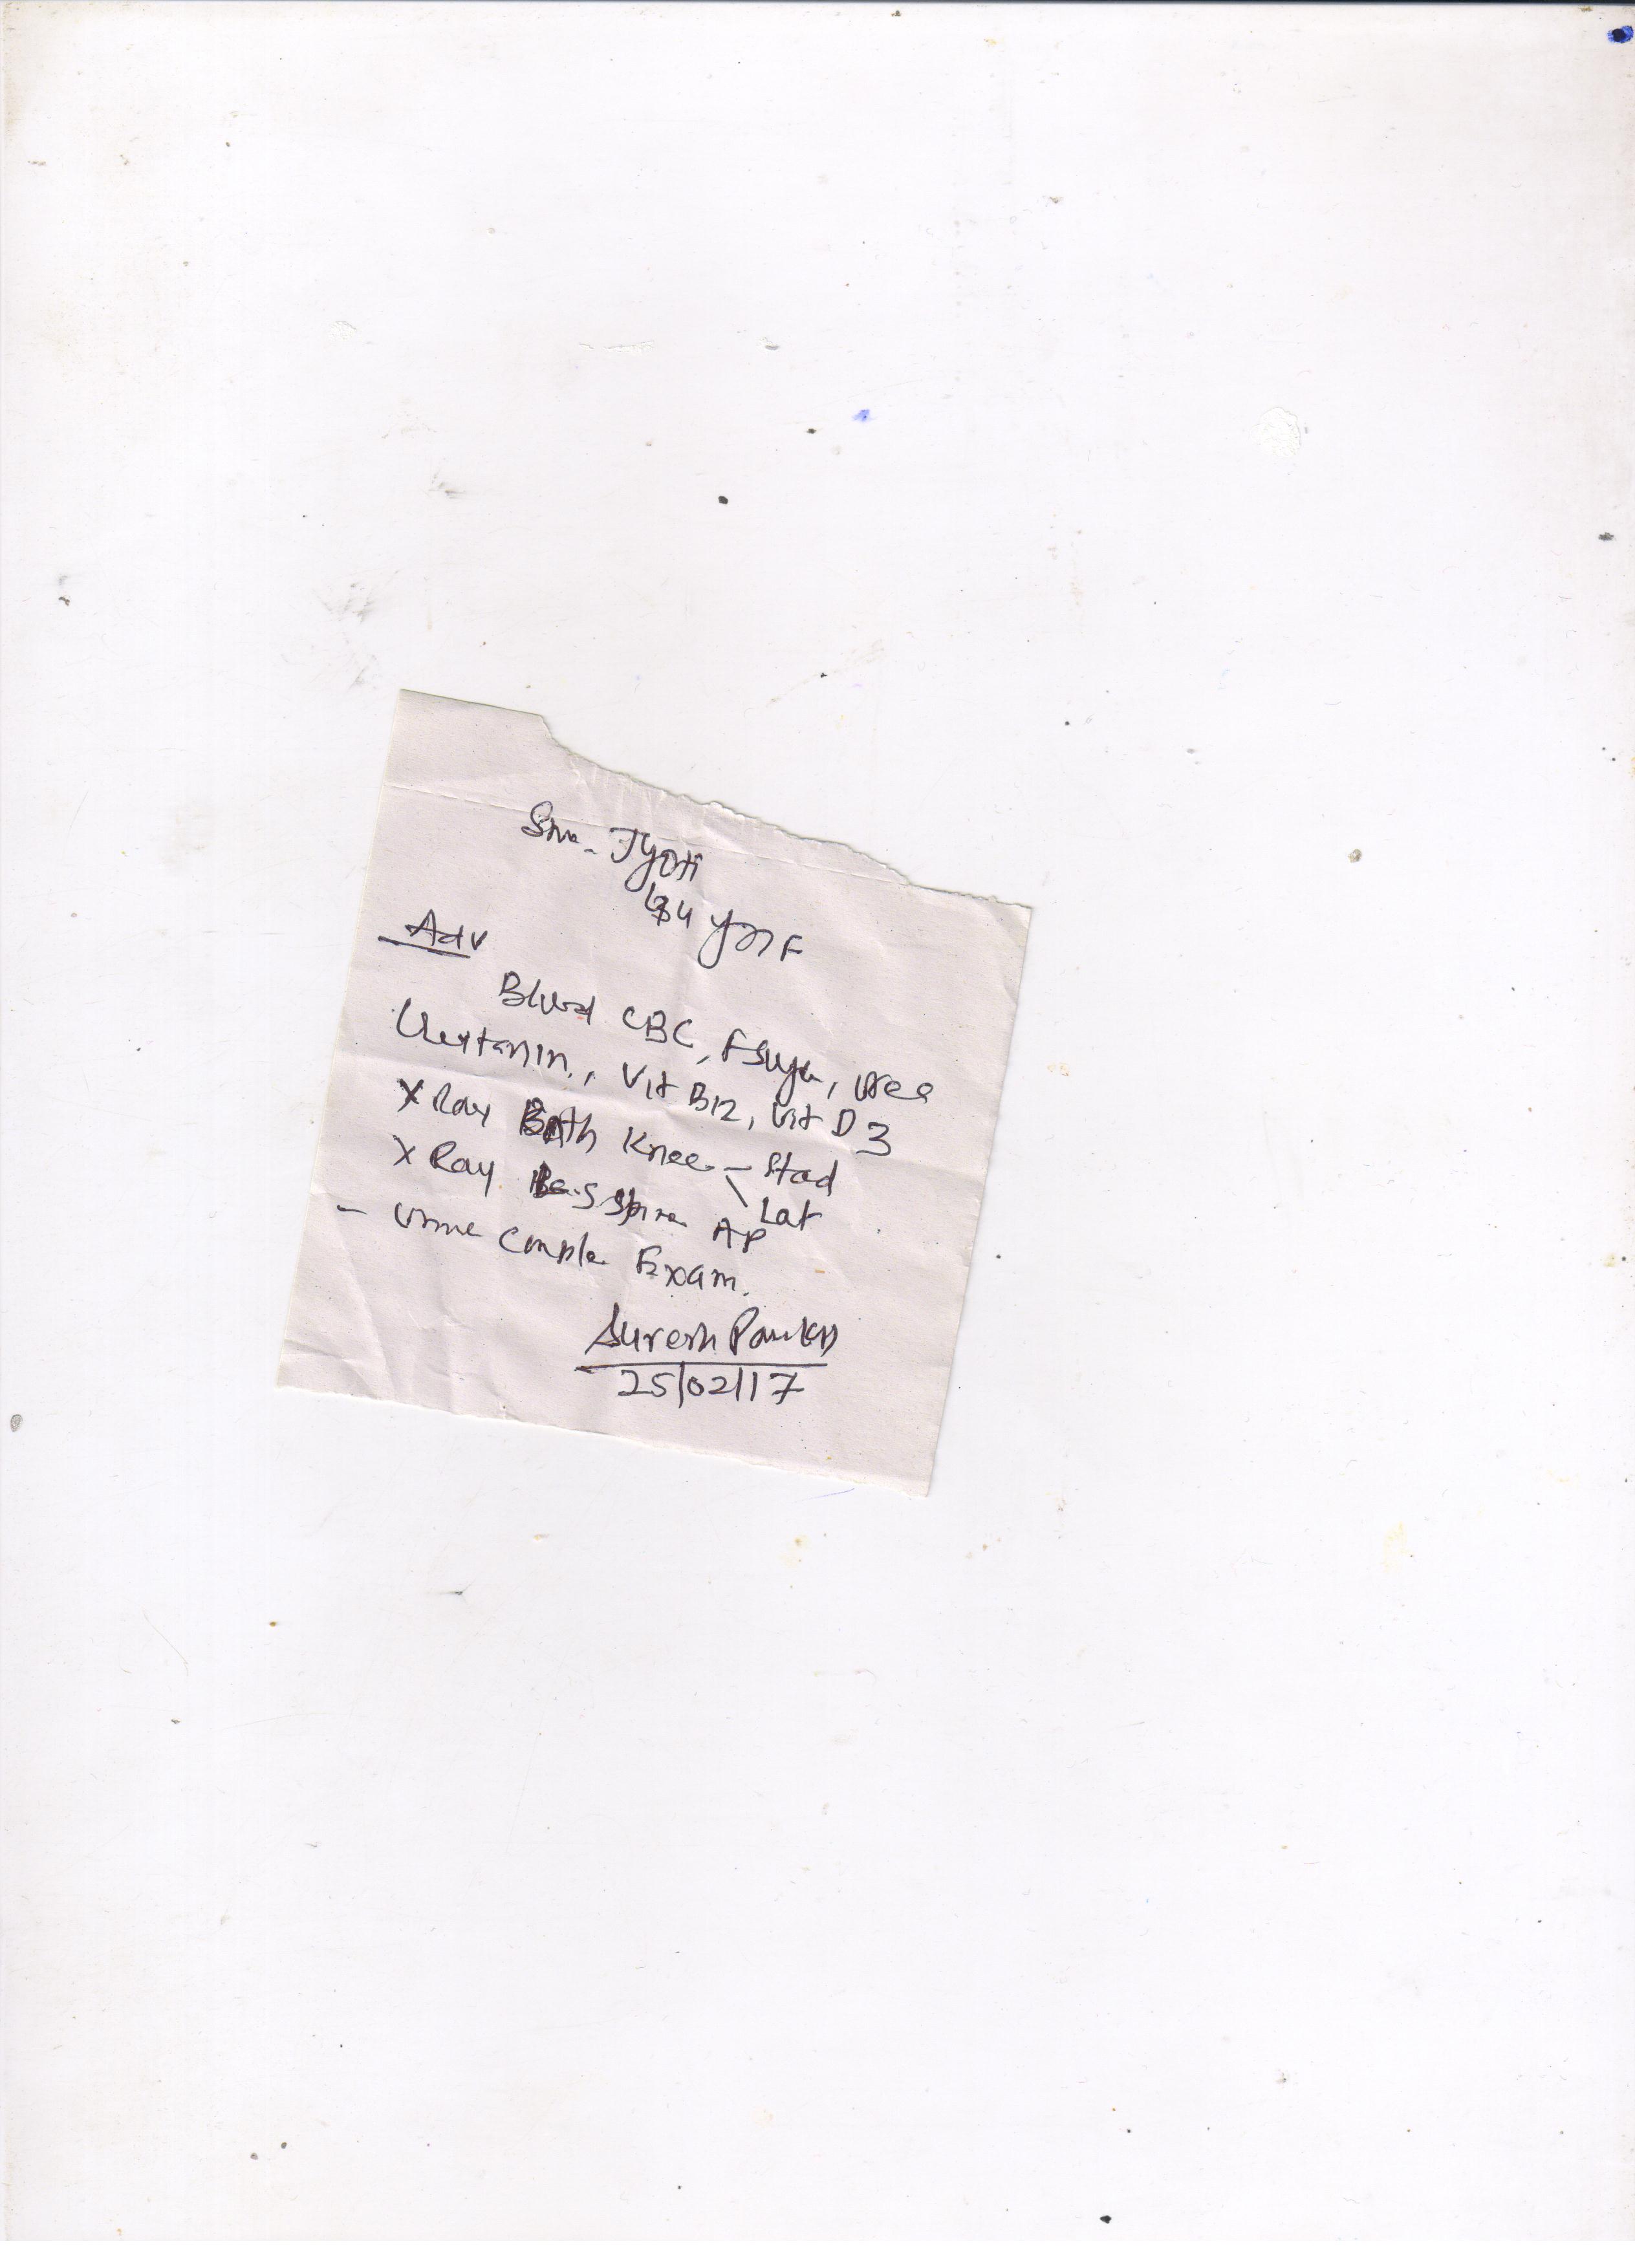 Sm. Jyoti
34 yrs F
Adv
Blood CBC, F Sugar, Urea
Creatanin., Vit B12, Vit D3
X Ray Both Knee - Stad
Lat
X Ray L.S Spine AP
- Urine Comple Exam.
Suresh
25/02/17